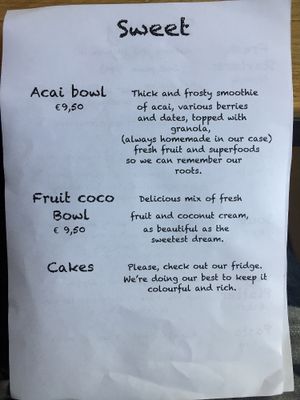 Sweet
Acai bowl
€9,50
Thick and frosty smoothie
of acai, various berries
and dates, topped with
granola,
(always homemade in our case)
fresh fruit and superfoods
so we can remember our
roots.
Fruit coco
Bowl
€ 9,50
Delicious mix of fresh
fruit and coconut cream,
as beautiful as the
sweetest dream.
Cakes
Please, check out our fridge.
We're doing our best to keep it
colourful and rich.